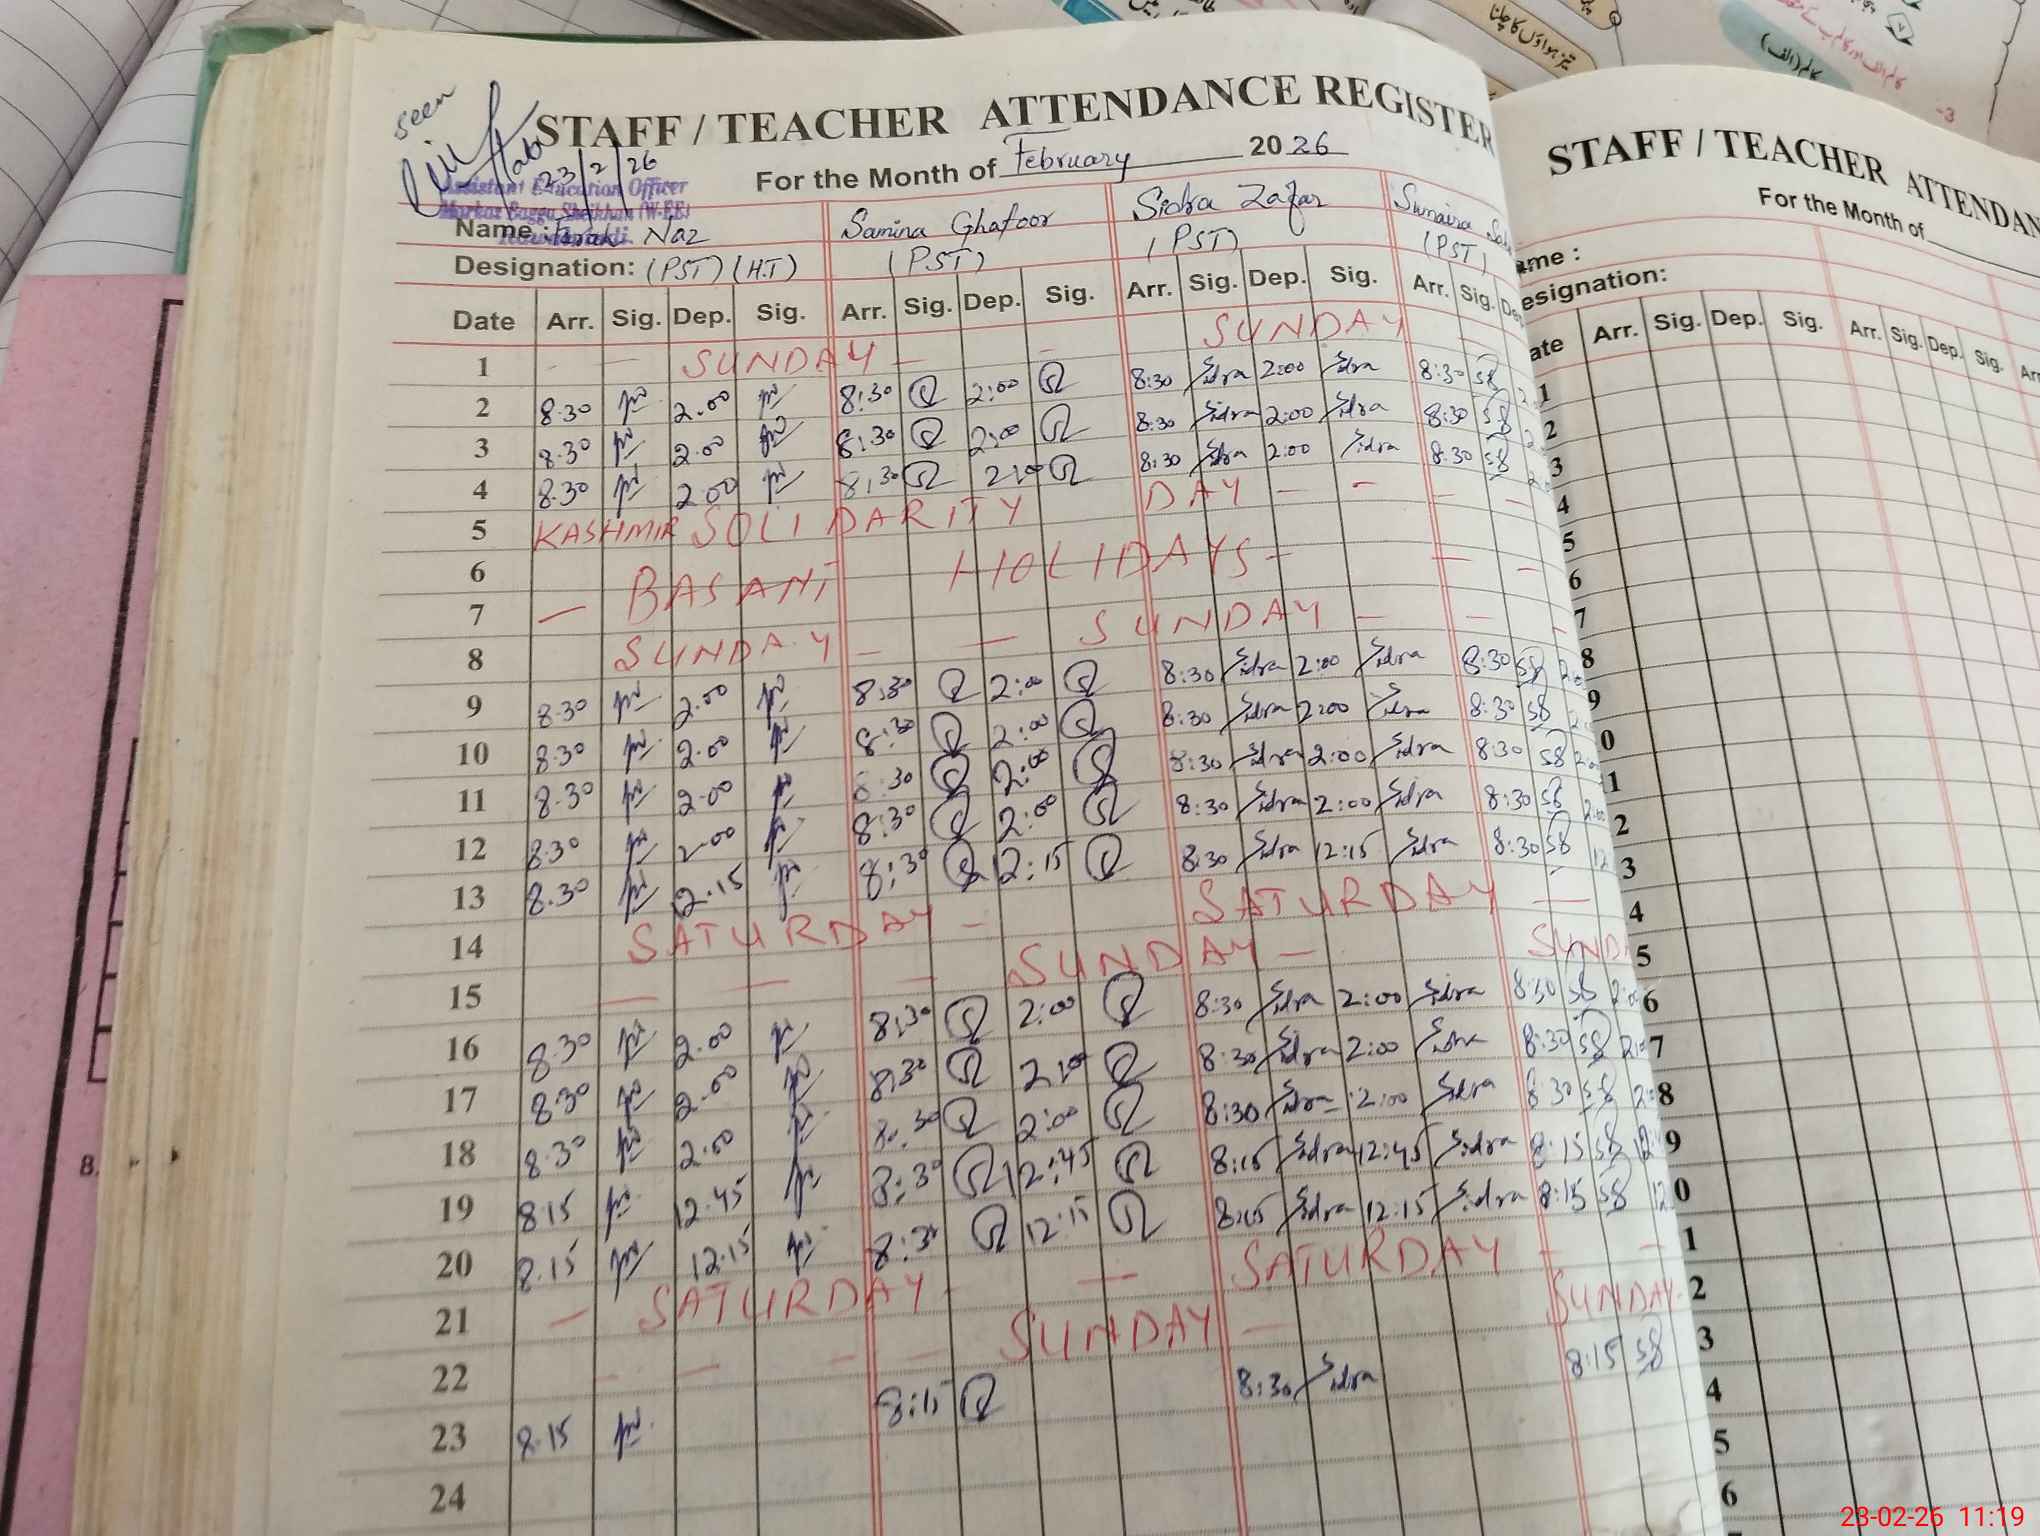 seen
23/2/26
Assistant Education Officer
Markaz Bagga Sheikhan (W-EE)
STAFF / TEACHER ATTENDANCE REGISTER
For the Month of February 2026
Name : Naz Samina Ghafoor Sidra Zafar Sumaira
Designation: (PST) (H.T) (PST) (PST) (PST)
Date Arr. Sig. Dep. Sig. Arr. Sig. Dep. Sig. Arr. Sig. Dep. Sig. Arr. Sig.
1 SUNDAY SUNDAY
2 8.30 2.00 8:30 2:00 8:30 Sidra 2:00 Sidra 8:30 SB
3 8.30 2.00 8:30 2:00 8:30 Sidra 2:00 Sidra 8:30 SB
4 8.30 2.00 8:30 2:00 8:30 Sidra 2:00 Sidra 8:30 SB
5 KASHMIR SOLIDARITY DAY - - - -
6 BASANT HOLIDAYS -
7 -
8 SUNDAY - - SUNDAY - - -
9 8.30 2.00 8:30 2:00 8:30 Sidra 2:00 Sidra 8:30 SB
10 8.30 2.00 8:30 2:00 8:30 Sidra 2:00 Sidra 8:30 SB
11 8.30 2.00 8:30 2:00 8:30 Sidra 2:00 Sidra 8:30 SB
12 8.30 2.00 8:30 2:00 8:30 Sidra 2:00 Sidra 8:30 SB
13 8.30 12.15 8:30 12:15 8:30 Sidra 12:15 Sidra 8:30 SB
14 SATURDAY - SATURDAY -
15 - - - SUNDAY -
16 8.30 2.00 8:30 2:00 8:30 Sidra 2:00 Sidra 8:30 SB
17 8.30 2.00 8:30 2:00 8:30 Sidra 2:00 Sidra 8:30 SB
18 8.30 2.00 8:30 2:00 8:30 Sidra 2:00 Sidra 8:30 SB
19 8.15 12.45 8:30 12:45 8:15 Sidra 12:45 Sidra 8:15 SB
20 8.15 12.15 8:30 12:15 8:15 Sidra 12:15 Sidra 8:15 SB
21 - SATURDAY - - SATURDAY - -
22 - - - - SUNDAY - SUNDAY
23 8.15 8:15 8:30 Sidra 8:15 SB
24
STAFF / TEACHER ATTENDAN
For the Month of
ame :
esignation:
ate Arr. Sig. Dep. Sig. Arr. Sig. Dep. Sig.
1
2
3
4
5
6
7
8
9
0
1
2
3
4
5
6
7
8
9
0
1
2
3
4
5
6
8.
تیز ہواؤں کا چلنا
کالم (الف)
-3
23-02-26 11:19